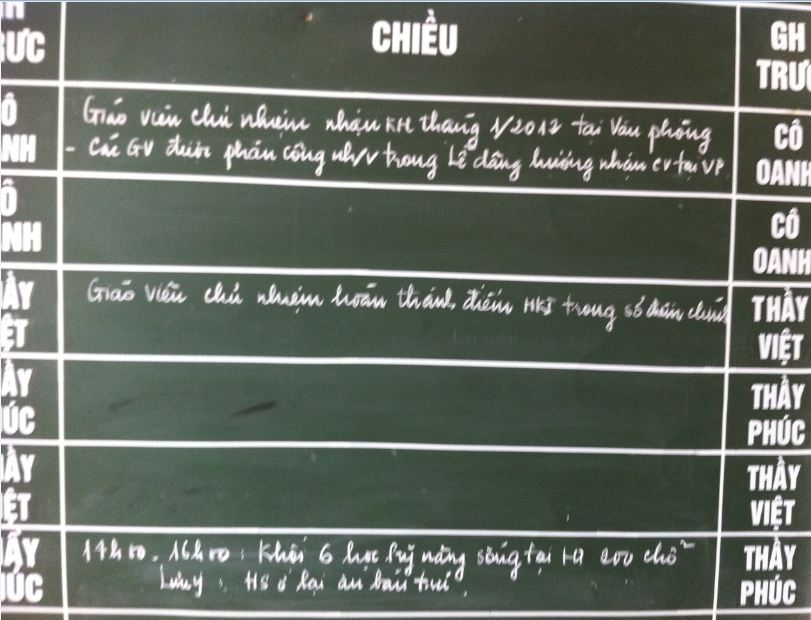 CHIỀU
GH
TRỰC
Giáo viên chủ nhiệm nhận KH tháng 1/2012 tại Văn phòng
- Các GV được phân công nh/v trong Lễ dâng hương nhận CV tại VP
CÔ
OANH
CÔ
OANH
Giáo viên chủ nhiệm hoàn thành điểm HKI trong sổ điểm chính
THẦY
VIỆT
THẦY
PHÚC
THẦY
VIỆT
14h00 - 16h00 : Khối 6 học kỹ năng sống tại HT 200 chỗ
Lưu ý : HS ở lại ăn bán trú
THẦY
PHÚC